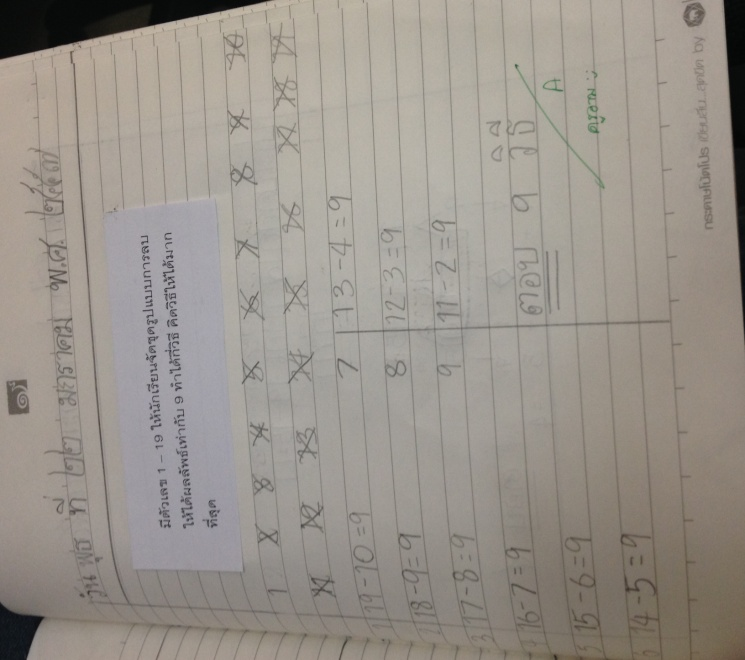 ๑
วันพุธ ที่ ๒๒ มกราคม พ.ศ. ๒๕๕๗
มีตัวเลข 1 – 19 ให้นักเรียนจัดชุดรูปแบบการลบ
ให้ได้ผลลัพธ์เท่ากับ 9 ทำได้กี่วิธี คิดวิธีให้ได้มาก
ที่สุด
1 2 3 4 5 6 7 8 9 10
11 12 13 14 15 16 17 18 19
1 19-10=9
2 18-9=9
3 17-8=9
4 16-7=9
5 15-6=9
6 14-5=9
7 13-4=9
8 12-3=9
9 11-2=9
ตอบ 9 วิธี
A
by